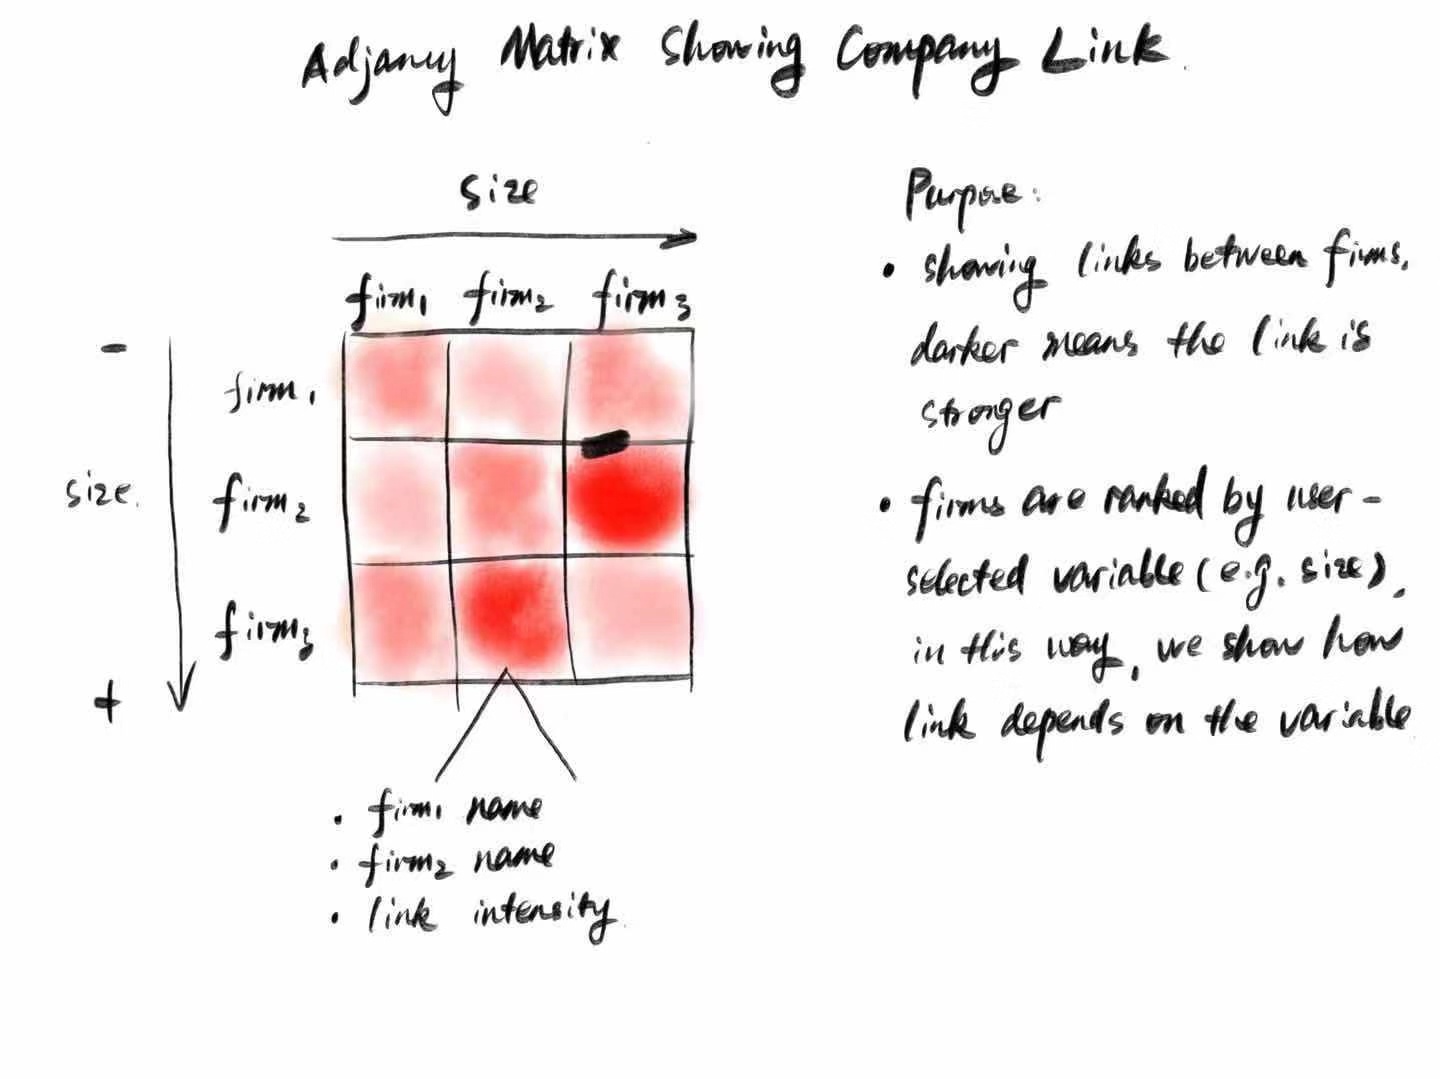 Adjancy Matrix Showing Company Link.
size
firm1 firm2 firm3
-
firm1
size.
firm2
firm3
+
• firm1 name
• firm2 name
• link intensity.
Purpose:
• showing links between firms,
darker means the link is
stronger
• firms are ranked by user-
selected variable (e.g. size),
in this way, we show how
link depends on the variable